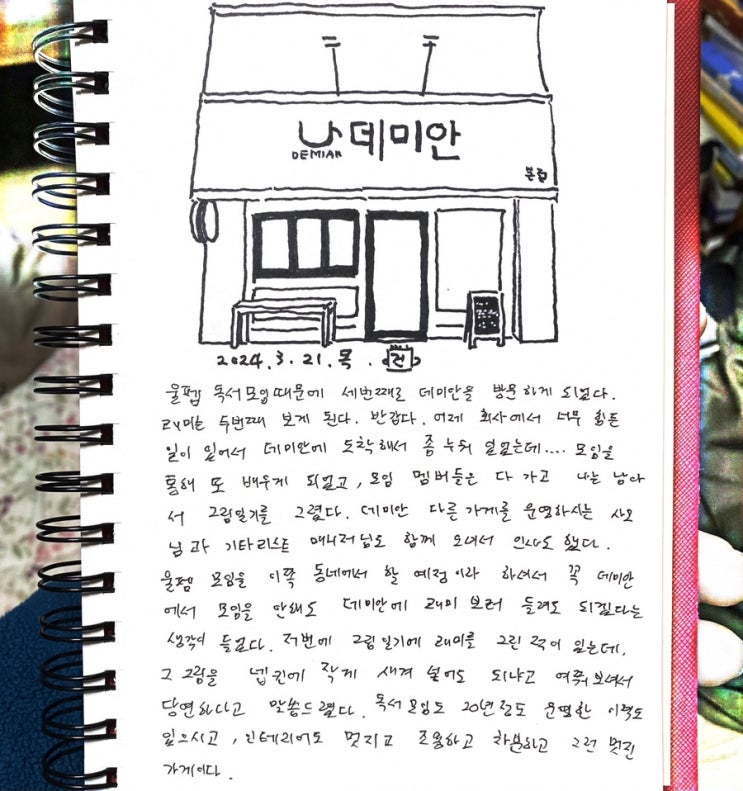 데미안
DEMIAN
본점
2024.3.21.목.
울펨 독서모임때문에 세번째로 데미안을 방문하게 되었다.
래미는 두번째 보게 된다. 반갑다. 어제 회사에서 너무 힘든
일이 있어서 데미안에 도착해서 좀 누워 있었는데.... 모임을
통해 또 배우게 되었고, 모임 멤버들은 다 가고 나는 남아
서 그림일기를 그렸다. 데미안 다른가게를 운영하시는 사모
님과 기타리스트 매니저님도 함께 오셔서 인사도 했다.
울펨 모임을 이쪽 동네에서 할 예정이라 하셔서 꼭 데미안
에서 모임을 안해도 데미안에 래미 보러 들려도 되겠다는
생각이 들었다. 저번에 그림일기에 래미를 그린 적이 있는데,
그 그림을 냅킨에 작게 새겨 넣어도 되냐고 여쭤보셔서
당연하다고 말씀드렸다. 독서모임도 20년정도 운영한 이력도
있으시고, 인테리어도 멋지고 조용하고 차분하고 그런 멋진
가게이다.